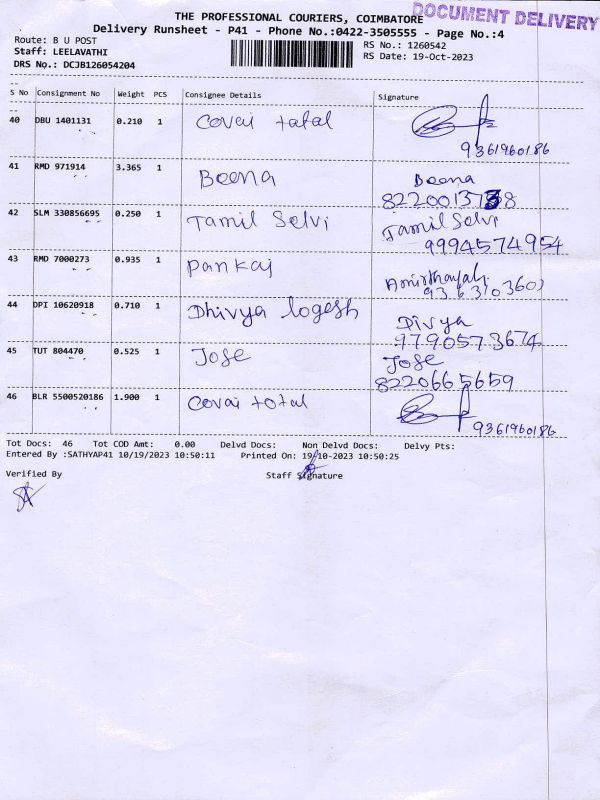 THE PROFESSIONAL COURIERS, COIMBATORE
DOCUMENT DELIVERY
Delivery Runsheet - P41 - Phone No.:0422-3505555 - Page No.:4
Route: B U POST
RS No.: 1260542
Staff: LEELAVATHI
RS Date: 19-Oct-2023
DRS No.: DCJB126054204
S No Consignment No Weight PCS Consignee Details Signature
40 DBU 1401131 0.210 1 Covai total
9361960186
41 RMD 971914 3.365 1 Beena Beena
42 SLM 330856695 0.250 1 Tamil Selvi Tamil Selvi
9994574954
43 RMD 7000273 0.935 1 Pankaj
44 DPI 10620918 0.710 1 Dhivya logesh Divya
9790573674
45 TUT 804470 0.525 1 Jose Jose
8220665659
46 BLR 5500520186 1.900 1 Covai total
9361960186
Tot Docs: 46 Tot COD Amt: 0.00 Delvd Docs: Non Delvd Docs: Delvy Pts:
Entered By :SATHYAP41 10/19/2023 10:50:11 Printed On: 19/10-2023 10:50:25
Verified By Staff Signature